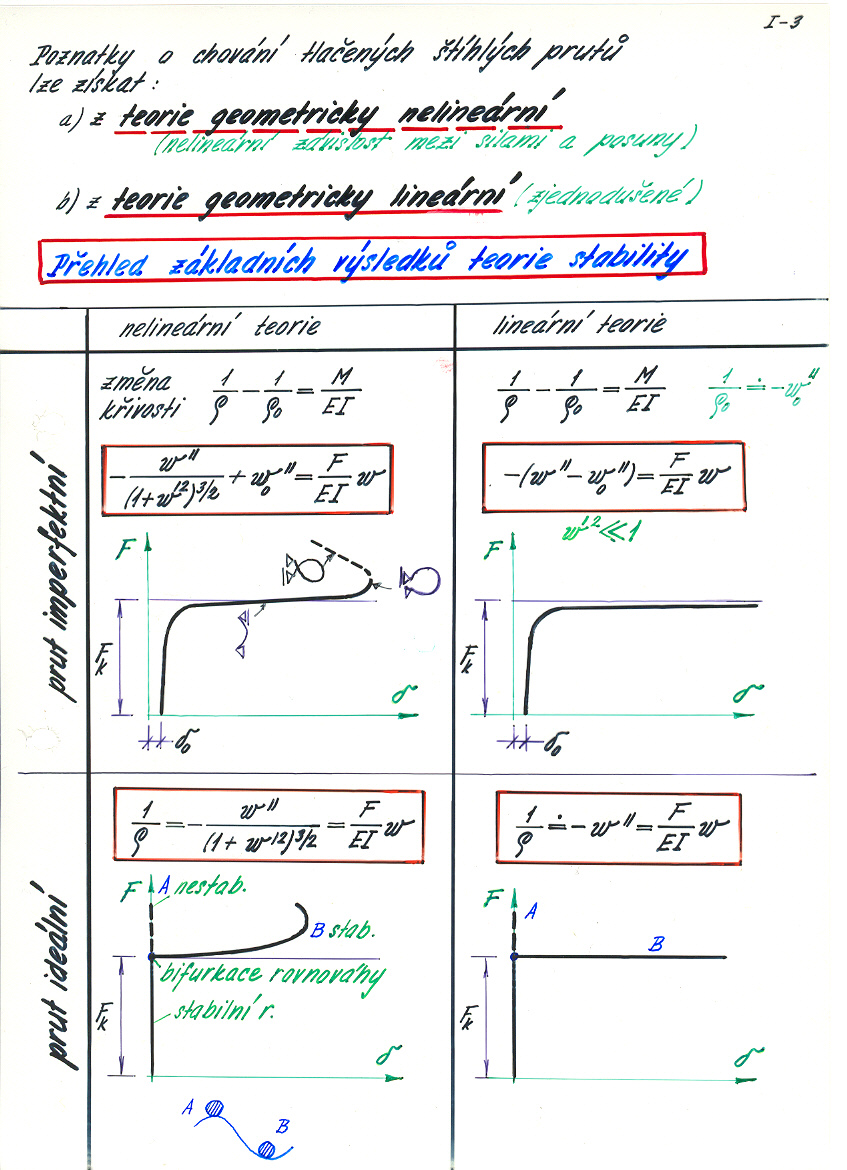 I-3
Poznatky o chování tlačených štíhlých prutů
lze získat:
a) z teorie geometricky nelineární
(nelineární závislost mezi silami a posuny)
b) z teorie geometricky lineární (zjednodušené)
Přehled základních výsledků teorie stability
nelineární teorie
lineární teorie
prut imperfektní
změna
křivosti
1/ρ - 1/ρ₀ = M/EI
-w''/(1+w'²)^3/2 + w₀'' = F/EI w
F
Fk
δ
δ₀
1/ρ - 1/ρ₀ = M/EI
1/ρ₀ ≐ -w₀''
-(w''-w₀'') = F/EI w
w'² ≪ 1
F
Fk
δ
δ₀
prut ideální
1/ρ = -w''/(1+w'²)^3/2 = F/EI w
F
A nestab.
B stab.
bifurkace rovnováhy
stabilní r.
Fk
δ
A
B
1/ρ ≐ -w'' = F/EI w
F
A
B
Fk
δ